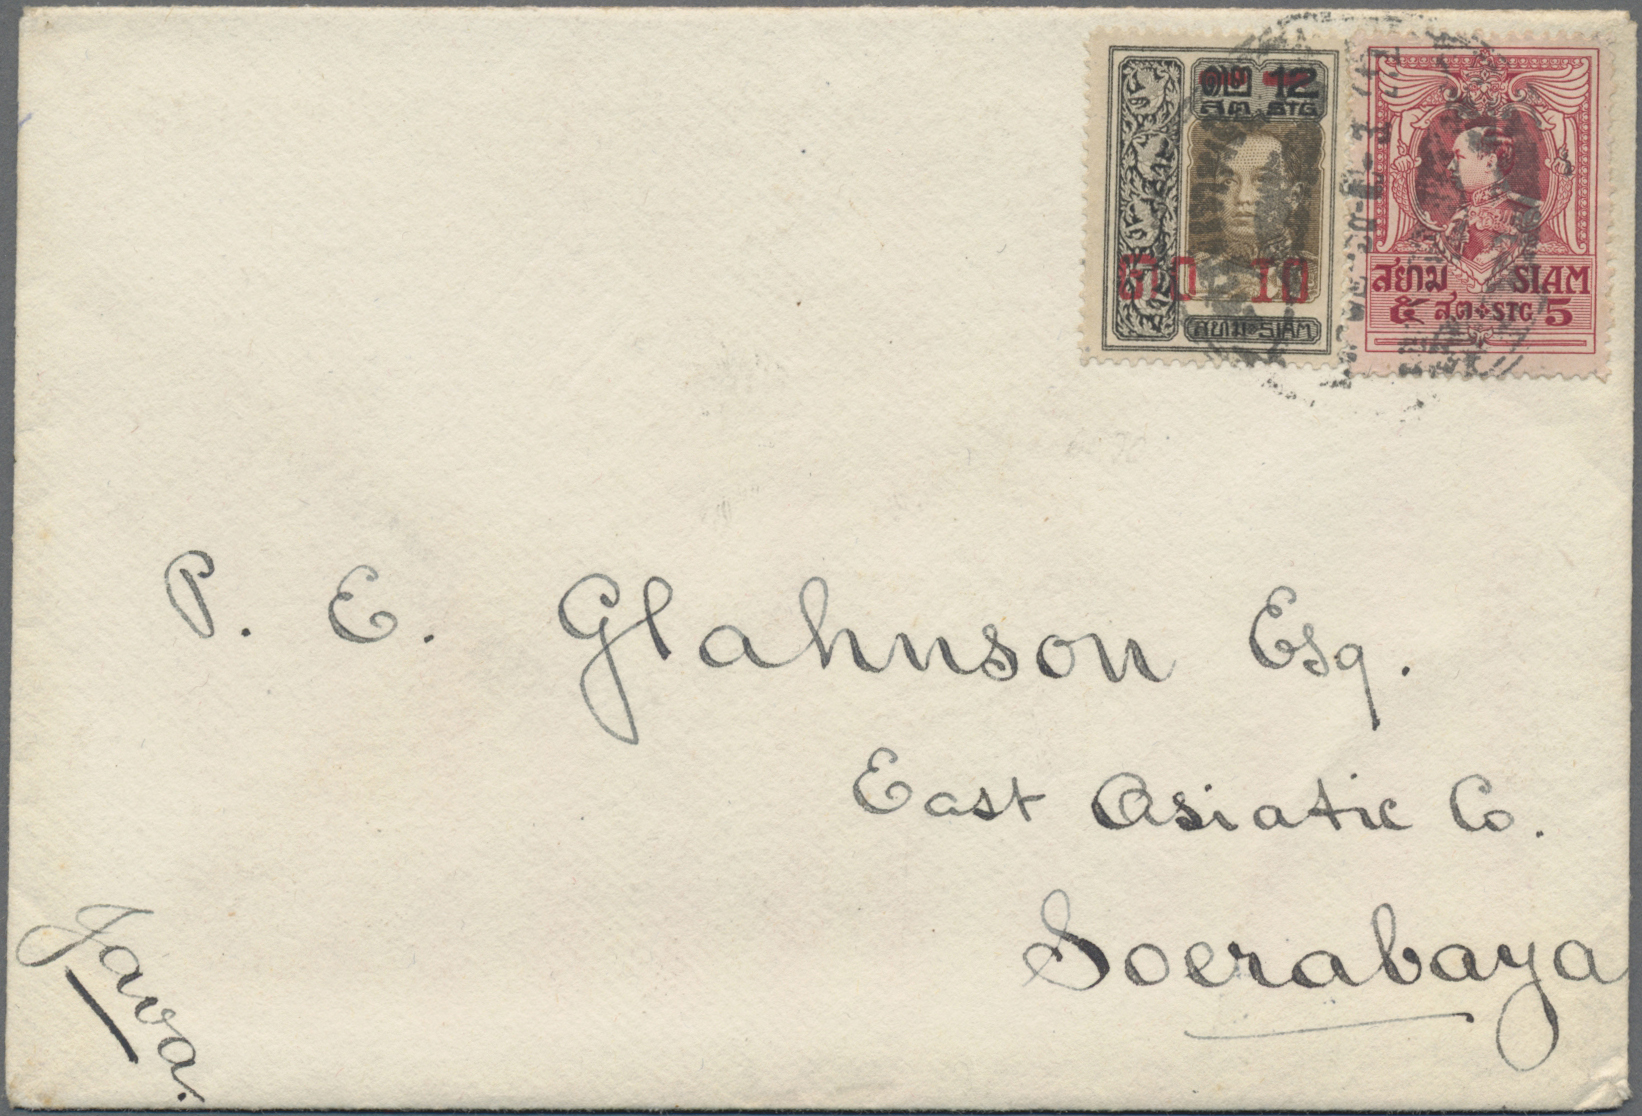 ๑๒ 12
สต. STG
๑๐ 10
สยาม SIAM
สยาม SIAM
๕ สต STG 5
P. E. Glahnson Esq.
East Asiatic Co.
Soerabaya
Java.